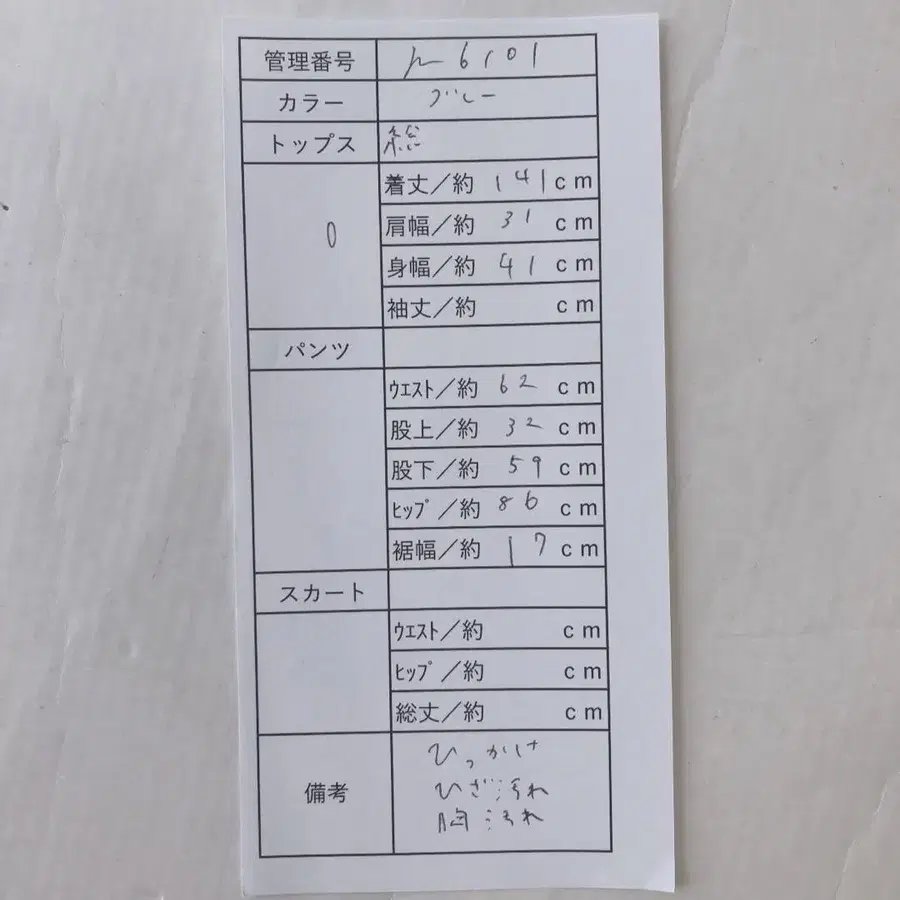 管理番号 h6101
カラー ブルー
トップス 総
0
着丈／約 141cm
肩幅／約 31 cm
身幅／約 41 cm
袖丈／約 cm
パンツ
ｳｴｽﾄ／約 62 cm
股上／約 32 cm
股下／約 59 cm
ﾋｯﾌﾟ／約 86 cm
裾幅／約 17 cm
スカート
ｳｴｽﾄ／約 cm
ﾋｯﾌﾟ／約 cm
総丈／約 cm
備考
ひっかけ
ひざ汚れ
胸汚れ